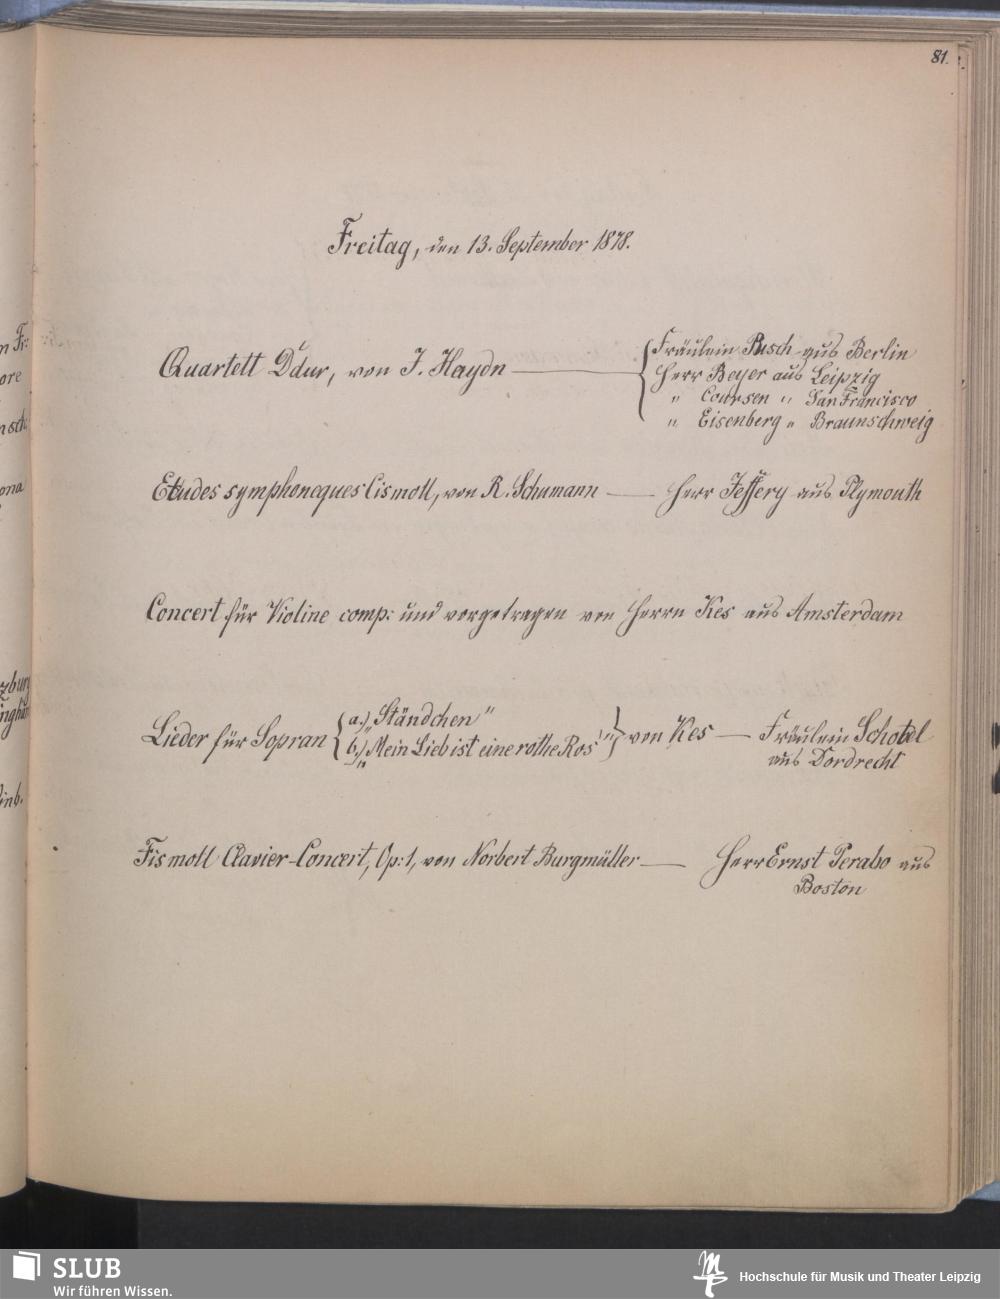 81.
Freitag, den 13. September 1878.
Quartett Ddur, von J. Haydn
Fräulein Busch aus Berlin
Herr Beyer aus Leipzig
" Coursen " San Francisco
" Eisenberg " Braunschweig
Etudes symphoneques Cismoll, von R. Schumann — Herr Jeffery aus Plymouth
Concert für Violine comp: und vorgetragen von Herrn Kes aus Amsterdam
Lieder für Sopran { a.) „Ständchen"
b.) „Mein Lieb ist eine rothe Ros'" } von Kes — Fräulein Schotel
aus Dordrecht
Fis moll Clavier-Concert, Op: 1, von Norbert Burgmüller — Herr Ernst Perabo aus
Boston
SLUB
Wir führen Wissen.
Hochschule für Musik und Theater Leipzig